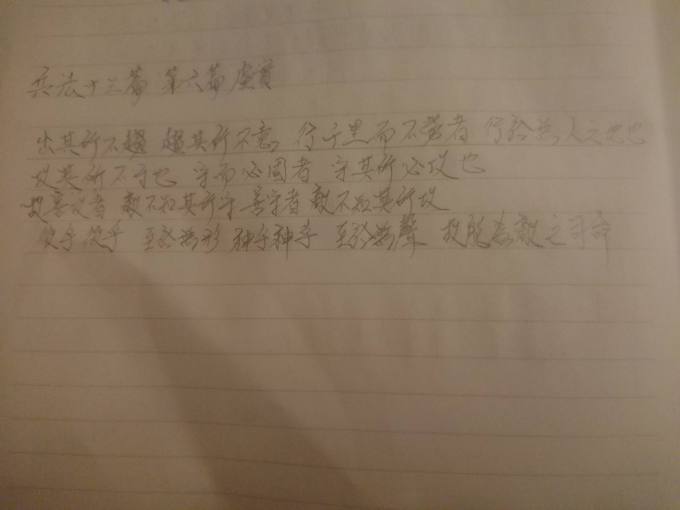 兵法十三篇 第六篇 虛實
出其所不趨 趨其所不意 行千里而不勞者 行於無人之地也
攻其所不守也 守而必固者 守其所必攻也
故善攻者 敵不知其所守 善守者 敵不知其所攻
微乎微乎 至於無形 神乎神乎 至於無聲 故能為敵之司命